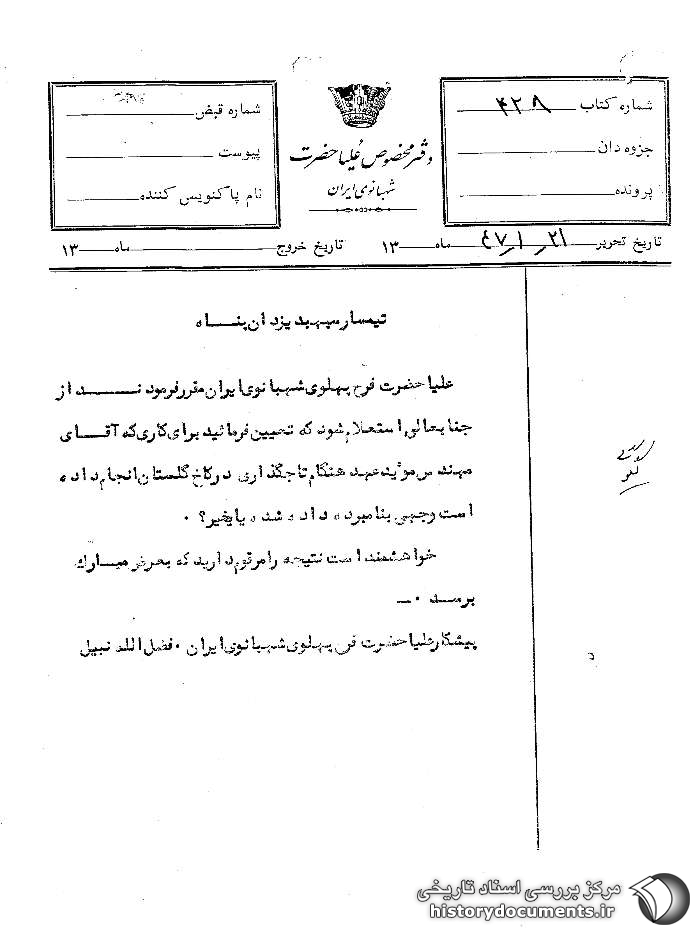 شماره کتاب ۴۲۸
جزوه دان
پرونده
دفتر مخصوص علیاحضرت
شهبانوی ایران
شماره قبض
پیوست
نام پاکنویس کننده
تاریخ تحریر ۲۱ ر ۱ ر ۴۷ ماه ۱۳
تاریخ خروج ماه ۱۳
تیمسار سپهبد یزدان پناه
علیاحضرت فرح پهلوی شهبانوی ایران مقرر فرمودند از
جنابعالی استعلام شود که تعیین فرمائید برای کاری که آقای
مهندس مؤیدعهد هنگام تاجگذاری در کاخ گلستان انجام داده
است وجهی بنامبرده داده شده یا خیر؟ ۰
خواهشمند است نتیجه را مرقوم دارید که بعرض مبارک
برسد ۰ـ
پیشکار علیاحضرت فرح پهلوی شهبانوی ایران ۰ فضل الله نبیل
مرکز بررسی اسناد تاریخی
historydocuments.ir